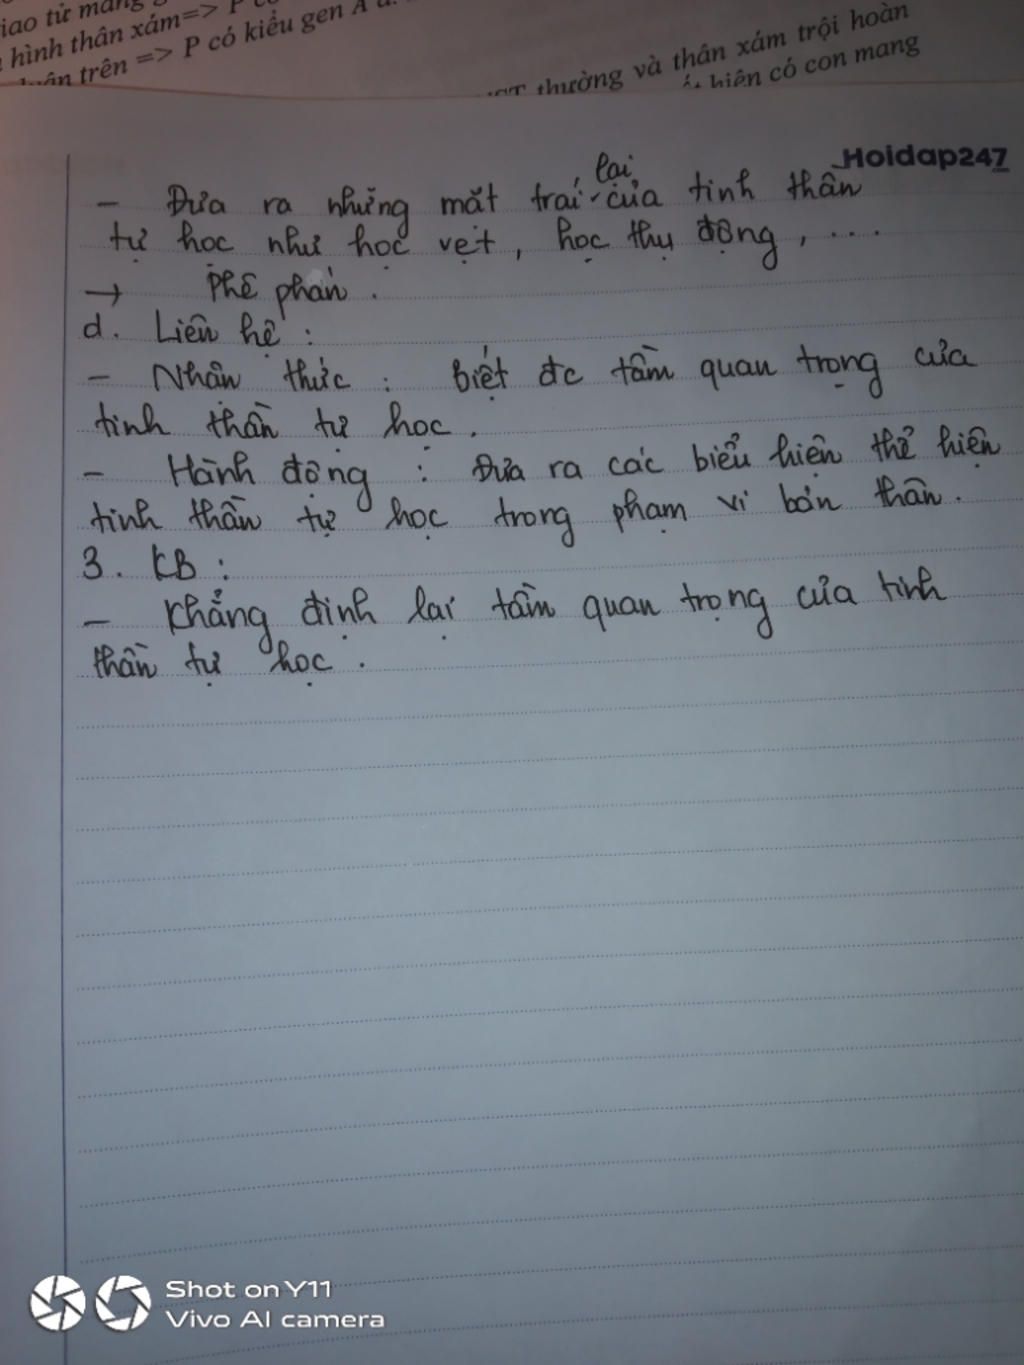 hình thân xám=> P
trên => P có kiểu gen A
thường và thân xám trội hoàn
hiện có con mang
Hoidap247
lại
- Đưa ra những mặt trái của tinh thần
tự học như học vẹt, học thụ động, ...
→ Phê phán.
d. Liên hệ :
- Nhận thức : biết đc tầm quan trọng của
tinh thần tự học.
- Hành động : Đưa ra các biểu hiện thể hiện
tinh thần tự học trong phạm vi bản thân.
3. KB :
- Khẳng định lại tầm quan trọng của tinh
thần tự học.
Shot on Y11
Vivo AI camera